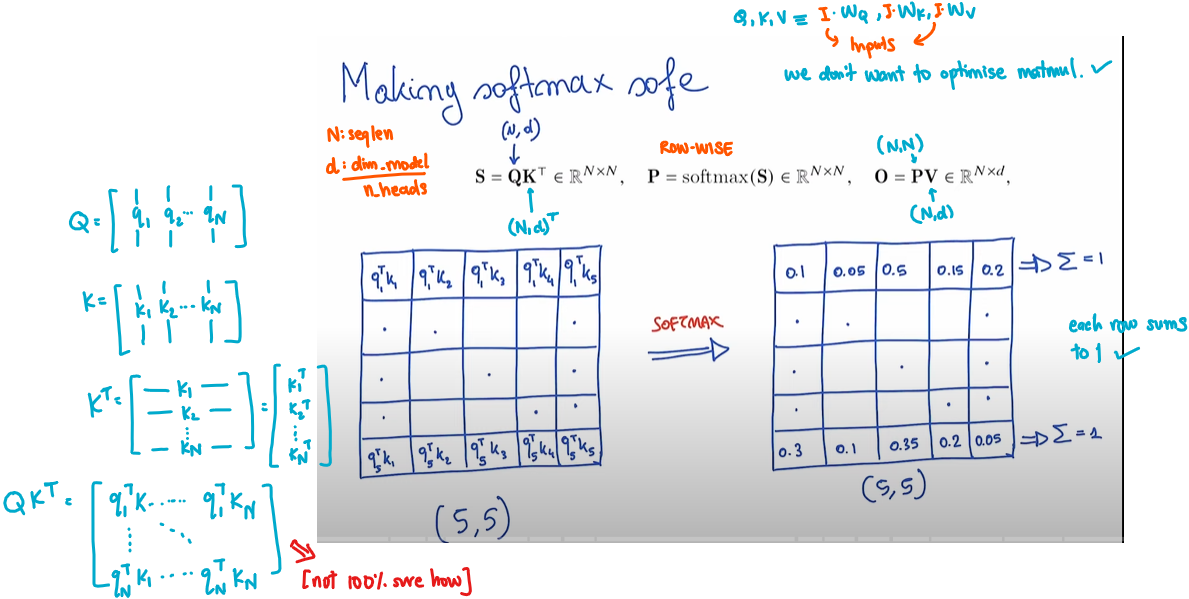 Q, K, V ≡ I·W_Q, I·W_K, I·W_V
Inputs
we don't want to optimise matmul. ✓
Making softmax safe
N: seqlen
d: dim_model
n_heads
(N, d)
ROW-WISE
(N,N)
S = QK^⊤ ∈ ℝ^{N×N}, P = softmax(S) ∈ ℝ^{N×N}, O = PV ∈ ℝ^{N×d},
(N,d)^T
(N,d)
Q = [q_1 q_2 ... q_N]
K = [k_1 k_2 ... k_N]
K^T = [— k_1 — — k_2 — ⋮ — k_N —] = [k_1^T k_2^T ⋮ k_N^T]
QK^T = [q_1^T k ..... q_1^T k_N
q_N^T k_1 .... q_N^T k_N]
[not 100% sure how]
q_1^T k_1 q_1^T k_2 q_1^T k_3 q_1^T k_4 q_1^T k_5
q_5^T k_1 q_5^T k_2 q_5^T k_3 q_5^T k_4 q_5^T k_5
(5,5)
SOFTMAX
0.1 0.05 0.5 0.15 0.2 ⇒ Σ = 1
each row sums
to 1 ✓
0.3 0.1 0.35 0.2 0.05 ⇒ Σ = 1
(5,5)